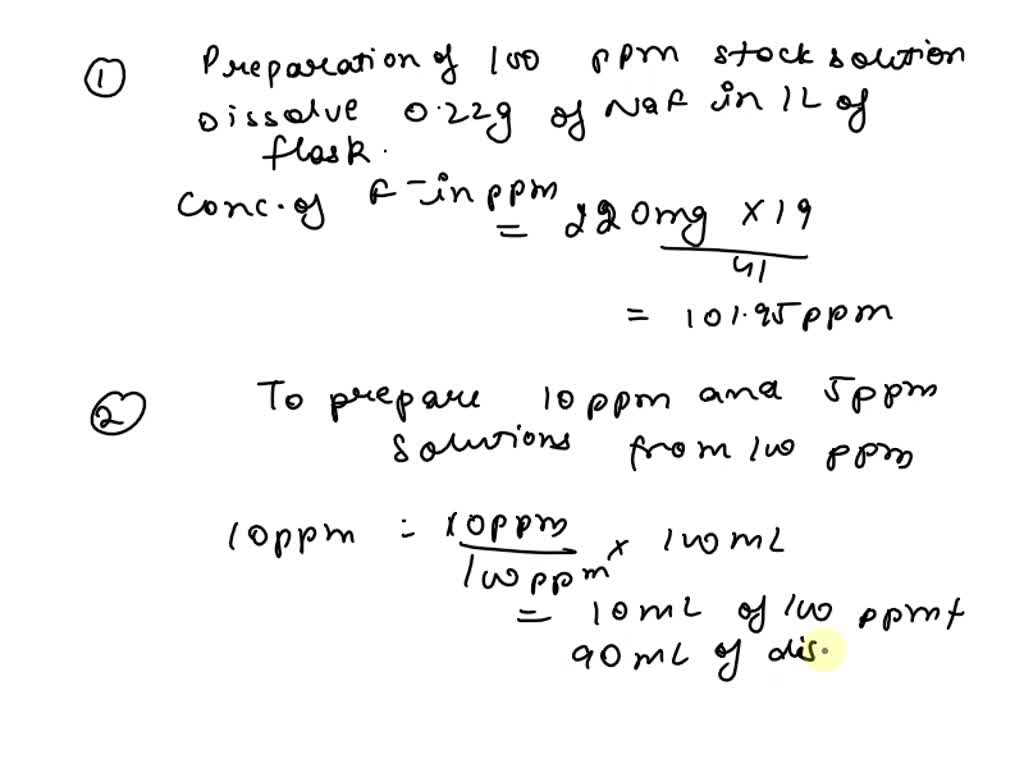 ① Preparation of 100 ppm stock solution
Dissolve 0.22g of NaF in 1L of
flask.
Conc. of F⁻ in ppm
= 220mg × 19
41
= 101.95 ppm
② To prepare 10 ppm and 5 ppm
solutions from 100 ppm
10 ppm = 10 ppm × 100 mL
100 ppm
= 10 mL of 100 ppm +
90 mL of dis.